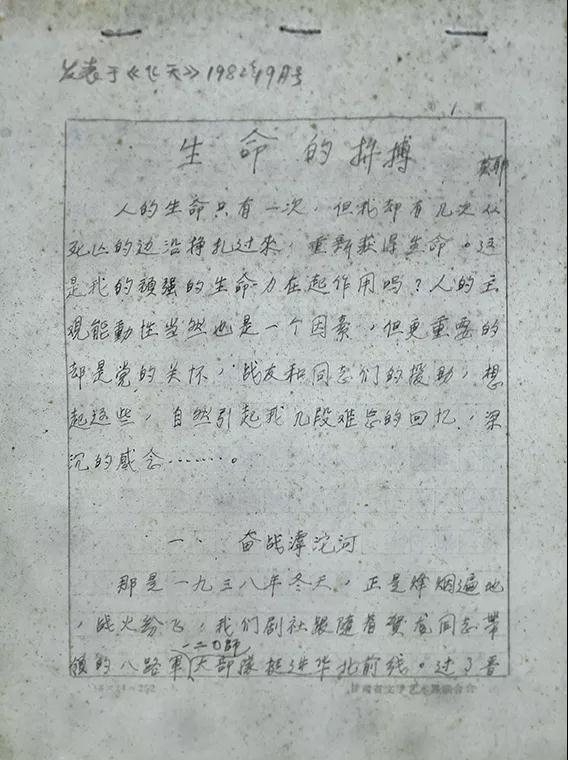 发表于《飞天》1982年9月号
第 1 页
生命的拚搏
莫耶
人的生命只有一次，但我却有几次从
死亡的边沿挣扎过来，重新获得生命。这
是我的顽强的生命力在起作用吗？人的主
观能動性当然也是一个因素，但更重要的
却是党的关怀，战友和同志们的援助，想
起这些，自然引起我几段难忘的回忆，深
沉的感念………。
一、奋战滹沱河
那是一九三八年冬天，正是烽烟遍地
，战火纷飞，我们剧社跟随着贺龙同志带
一二〇師
領的八路軍大部隊挺进华北前线。过了晋
甘肃省文学艺术界联合会